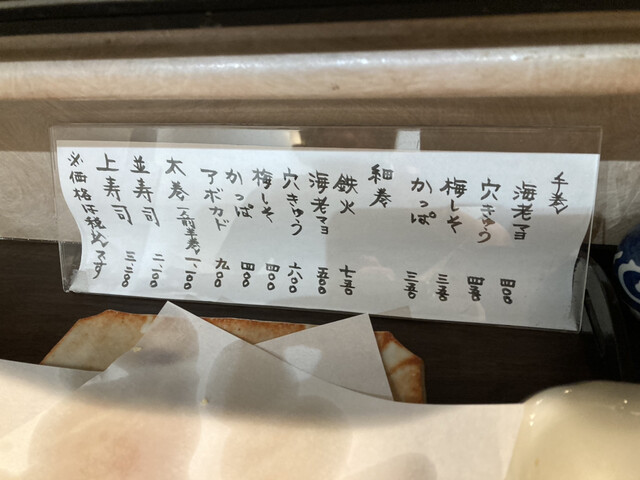 手巻
海老マヨ 四〇〇
穴きゅう 四五〇
梅しそ 三五〇
かっぱ 三五〇
細巻
鉄火 七五〇
海老マヨ 五〇〇
穴きゅう 六〇〇
梅しそ 四〇〇
かっぱ 四〇〇
アボカド 九〇〇
太巻 一、一〇〇
並寿司 二、一〇〇
上寿司 三、三〇〇
※価格は税込みです